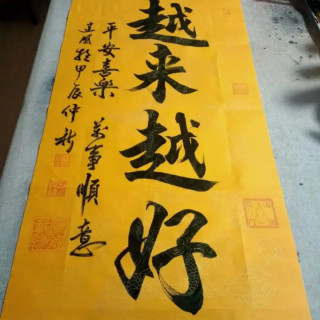 越来越好
平安喜樂 萬事順意
甲辰仲秋